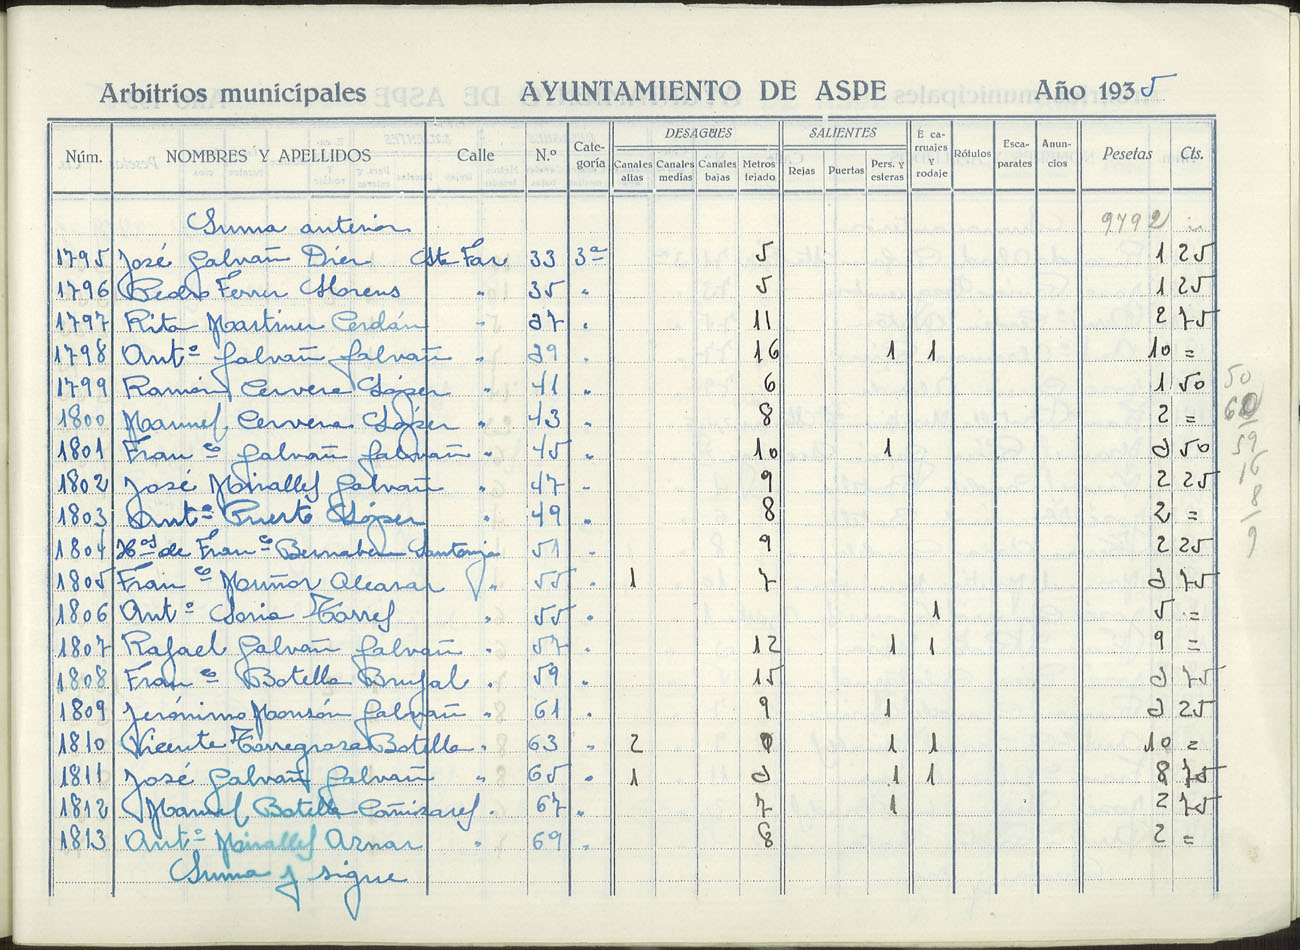 Arbitrios municipales AYUNTAMIENTO DE ASPE Año 1935
Núm. NOMBRES Y APELLIDOS Calle N.º Categoría DESAGÜES Canales altas Canales medias Canales bajas Metros tejado SALIENTES Rejas Puertas Pers. y esteras E carruajes y rodaje Rótulos Escaparates Anuncios Pesetas Cts.
Suma anterior 9792
1795 José Galvañ Díez Sta Faz 33 3ª 5 1 25
1796 Pedro Ferrer Llorens " 35 " 5 1 25
1797 Rita Martínez Cerdán " 37 " 11 2 75
1798 Antº Galvañ Galvañ " 39 " 16 1 1 10 =
1799 Ramón Cervera López " 41 " 6 1 50
1800 Manuel Cervera López " 43 " 8 2 =
1801 Franco Galvañ Galvañ " 45 " 10 1 3 50
1802 José Miralles Galvañ " 47 " 9 2 25
1803 Antº Puerto López " 49 " 8 2 =
1804 Hos de Franco Bernabeu Santonja " 51 " 9 2 25
1805 Franco Muñoz Alcaraz " 55 " 1 7 3 75
1806 Antº Soria Torres " 55 " 1 5 =
1807 Rafael Galvañ Galvañ " 57 " 12 1 1 9 =
1808 Franco Botella Brufal " 59 " 15 3 75
1809 Jerónimo Monzón Galvañ " 61 " 9 1 3 25
1810 Vicente Torregrosa Botella " 63 " 2 1 1 10 =
1811 José Galvañ Galvañ " 65 " 1 3 1 1 8 75
1812 Manuel Botella Cañizares " 67 " 7 1 2 75
1813 Antº Miralles Aznar " 69 " 8 2 =
Suma y sigue
50
60
59
16
8
9